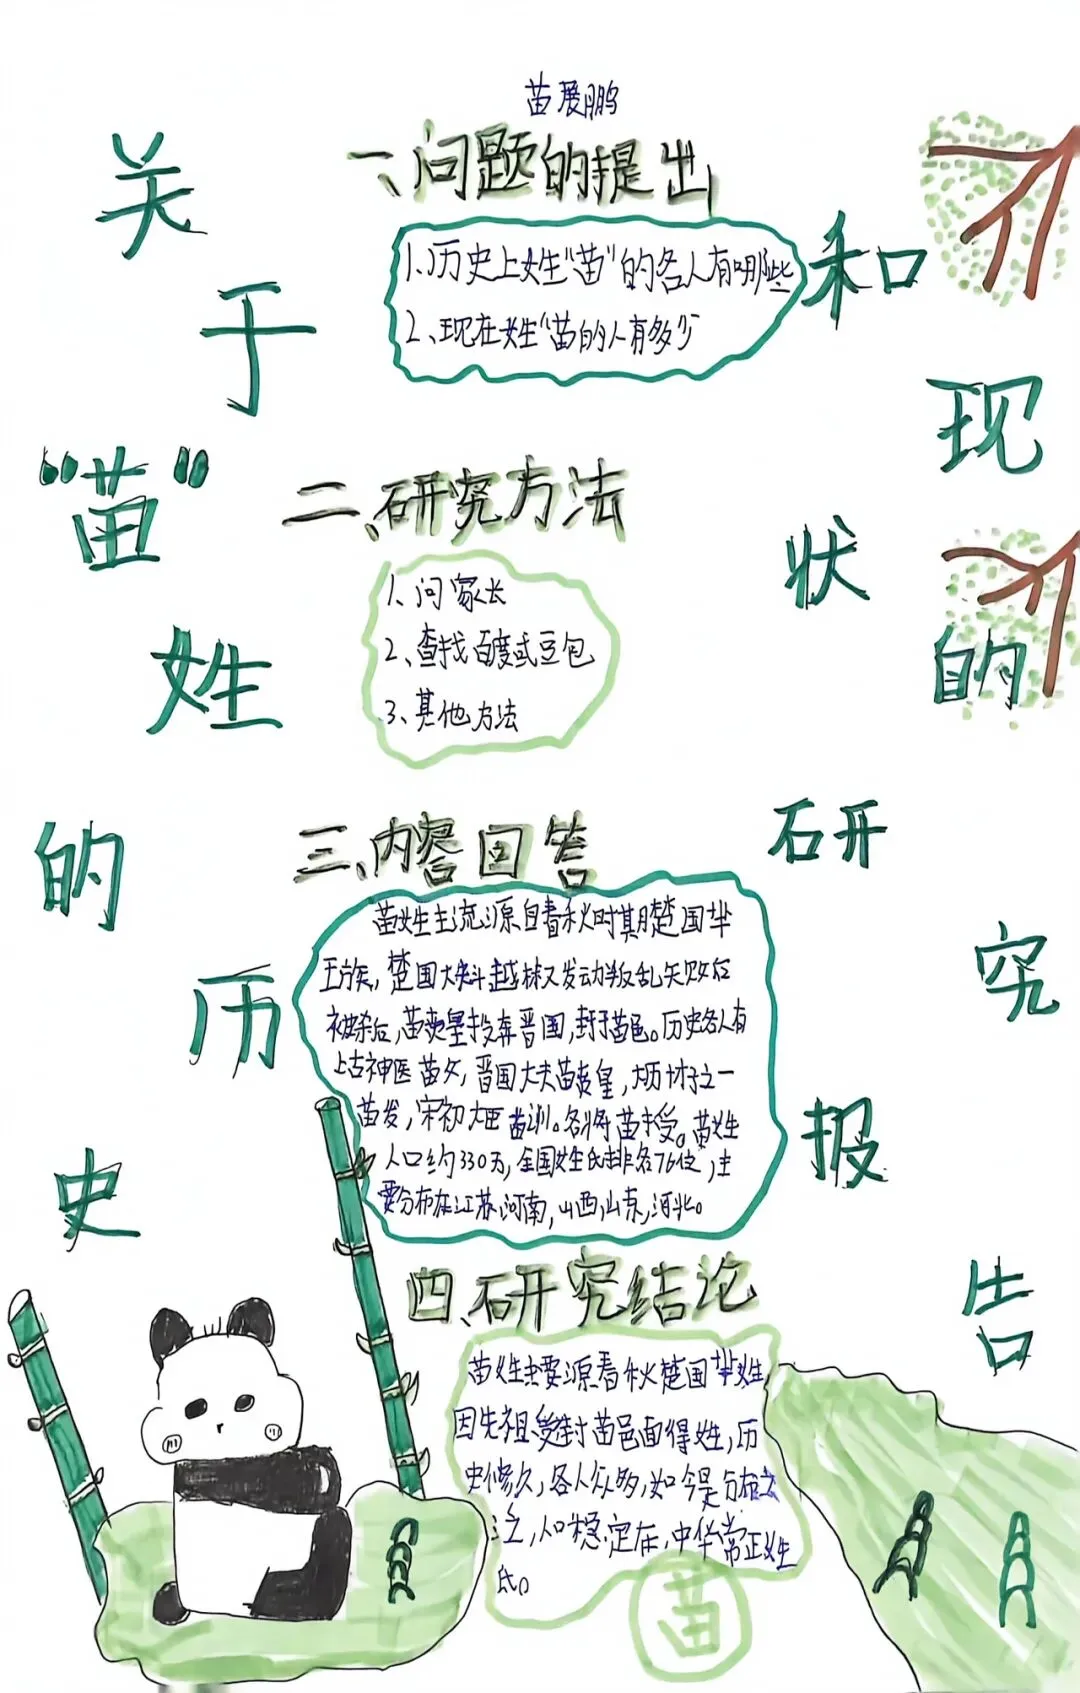 苗展鹏
关于“苗”姓的历史和现状的研究报告
一、问题的提出
1、历史上姓“苗”的名人有哪些
2、现在姓“苗的人有多少
二、研究方法
1、问家长
2、查找百度或豆包
3、其他方法
三、内容回答
苗姓主流源自春秋时期楚国芈
王族，楚国大夫斗越椒又发动叛乱失败后
被杀后，苗贲皇投奔晋国，封于苗邑。历史名人有
上古神医苗父，晋国大夫苗贲皇，大历才子之一
苗发，宋初大臣苗训。名将苗授。苗姓
人口约330万，全国姓氏排名76位，主
要分布在江苏，河南，山西，山东，河北。
四、研究结论
苗姓主要源春秋楚国芈姓
因先祖受封苗邑面得姓，历
史悠久，名人众多，如今是分布
泛，人口稳定在，中华常正姓
氏。
苗